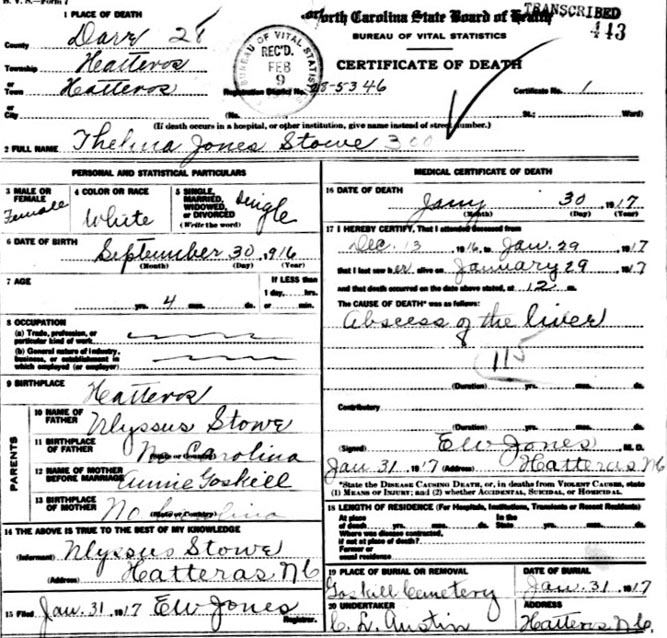 1 PLACE OF DEATH
County Dare 28
Township Hatteros
or
Town Hatteros
or
City
North Carolina State Board of Health
TRANSCRIBED
443
BUREAU OF VITAL STATISTICS
CERTIFICATE OF DEATH
BUREAU OF VITAL STATISTICS
REC'D.
FEB
9
Registration District No. 28-5346 Certificate No. 1
(No. St.; Ward)
(If death occurs in a hospital, or other institution, give name instead of street number.)
2 FULL NAME Thelma Jones Stowe
PERSONAL AND STATISTICAL PARTICULARS
3 MALE OR FEMALE Female
4 COLOR OR RACE White
5 SINGLE, MARRIED, WIDOWED, OR DIVORCED (Write the word) Single
6 DATE OF BIRTH September 30, 916
(Month) (Day) (Year)
7 AGE
yrs. 4 mos. ds.
If LESS than
1 day, hrs.
or min.
8 OCCUPATION
(a) Trade, profession, or
particular kind of work
(b) General nature of industry,
business, or establishment in
which employed (or employer)
9 BIRTHPLACE Hatteros
PARENTS
10 NAME OF FATHER Ulyssus Stowe
11 BIRTHPLACE OF FATHER No Carolina
12 NAME OF MOTHER BEFORE MARRIAGE Annie Gaskill
13 BIRTHPLACE OF MOTHER No Carolina
(State or Country)
14 THE ABOVE IS TRUE TO THE BEST OF MY KNOWLEDGE
(Informant) Ulyssus Stowe
(Address) Hatteras N C
15 Filed Jan. 31, 1917 E W Jones
Registrar.
MEDICAL CERTIFICATE OF DEATH
16 DATE OF DEATH
Jany 30 1917
(Month) (Day) (Year)
17 I HEREBY CERTIFY, That I attended deceased from
Dec. 13 1916, to Jan. 29 1917
that I last saw her alive on January 29 1917
and that death occurred on the date above stated, at 12 m.
The CAUSE OF DEATH* was as follows:
Abscess of the liver
115
(Duration) yrs. mos. ds.
Contributory
(Duration) yrs. mos. ds.
(Signed) E W Jones M. D.
Jan 31 1917 (Address) Hatteras N C
*State the DISEASE CAUSING DEATH, or, in deaths from VIOLENT CAUSES, state
(1) MEANS OF INJURY; and (2) whether ACCIDENTAL, SUICIDAL, or HOMICIDAL.
18 LENGTH OF RESIDENCE (For Hospitals, Institutions, Transients or Recent Residents)
At place of death yrs. mos. ds. In the State yrs. mos. ds.
Where was disease contracted,
if not at place of death?
Former or
usual residence
19 PLACE OF BURIAL OR REMOVAL
Gaskill Cemetery
DATE OF BURIAL
Jan. 31, 1917
20 UNDERTAKER
C. L. Austin
ADDRESS
Hatteras N C.